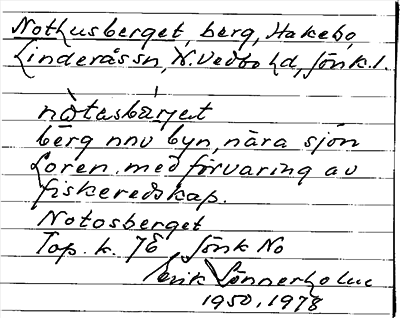 Nothusberget, berg, Hakebo,
Linderås sn, N. Vedbo hd, Jönk. l.
nòtasbárjet
berg nnv byn, nära sjön
Loren. med förvaring av
fiskeredskap.
Notosberget
Top. k. 7E Jönk NO
Erik Sönnerholm
1950, 1978